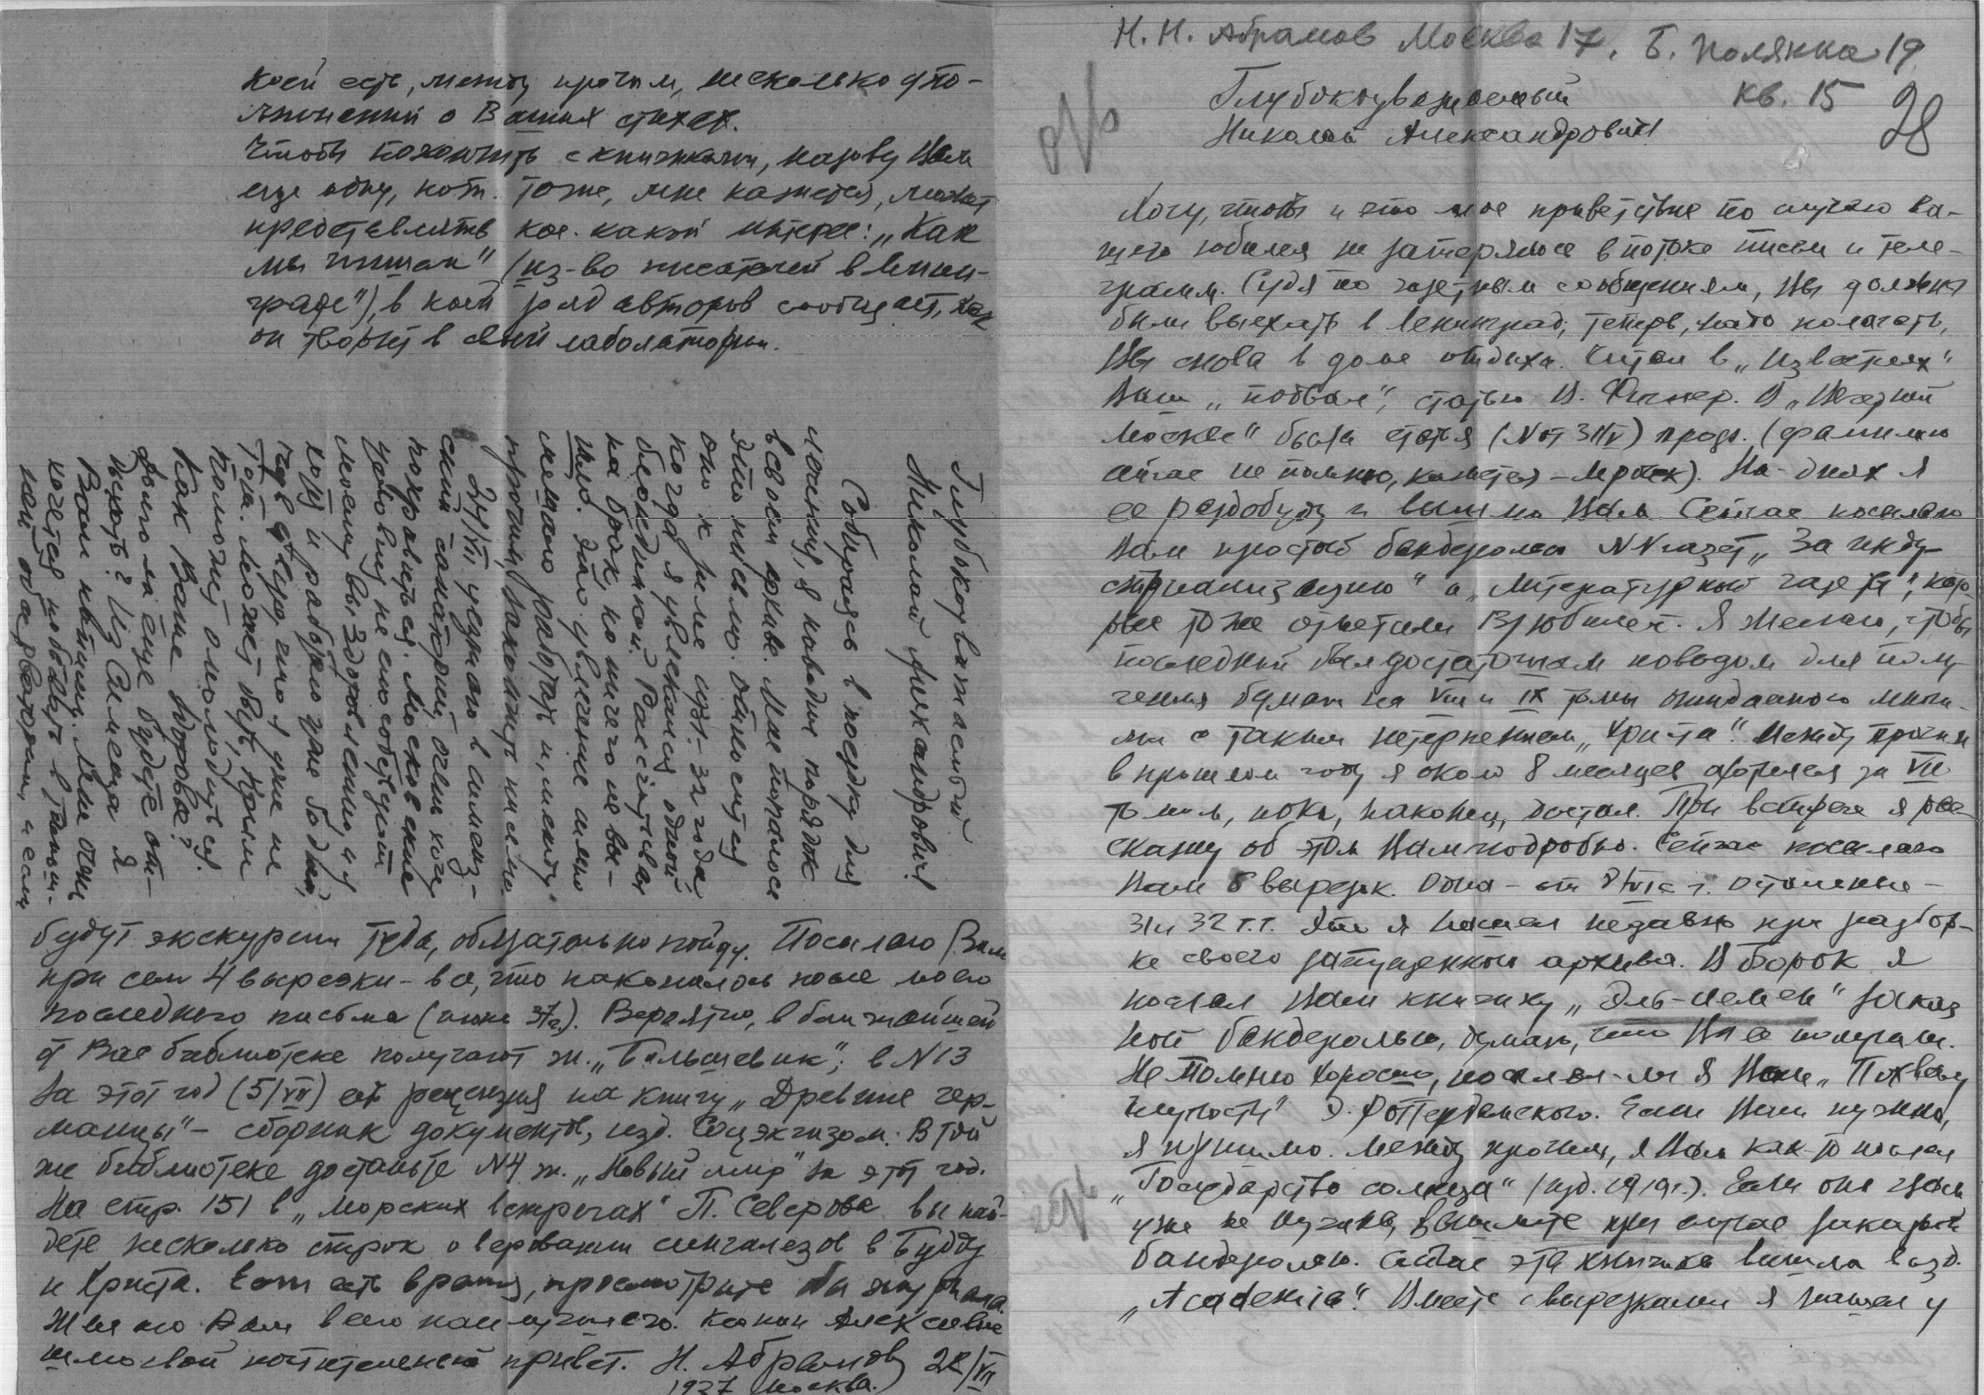 Н. Н. Абрамов Москва 17, Б. Полянка 19
кв. 15
28
Глубокоуважаемый
Николай Александрович!
Хочу, чтобы и это мое приветствие по случаю Ва-
шего юбилея не затерялось в потоке писем и теле-
грамм. Судя по газетным сообщениям, Вы должны
были выехать в Ленинград, теперь, надо полагать,
Вы снова в доме отдыха. Читал в „Известиях"
Ваш „подвал", статью В. Фигнер. В „Вечерней
Москве" была статья (N от 3/IV) проф. (фамилию
сейчас не помню, кажется – ). На-днях я
ее раздобуду и вышлю Вам. Сейчас посылаю
Вам простой бандеролью NN газет „За инду-
стриализацию" и „Литературной газеты", кото-
рые тоже отметили В/ юбилей. Я желаю, чтобы
последний был достаточным поводом для полу-
чения бумаги на VIII и IX томы ожидаемого многи-
ми с таким нетерпением „Христа". Между прочим
в прошлом году я около 8 месяцев охотился за VII
томом, пока, наконец, достал. При встрече я рас-
скажу об этом Вам подробно. Сейчас посылаю
Вам 8 вырезок. Одна – от остальные –
31 и 32 г.г. Эти я нашел недавно при разбор-
ке своего запущенного архива. В Борок я
послал Вам книжку „Эль-" заказ
ной бандеролью, думаю, что Вы ее получили.
Не помню хорошо, посылал-ли я Вам „Похвалу
глупости" Э. Роттердамского. Если Вам нужна,
я пришлю. Между прочим, я Вам как-то послал
„Государство солнца" (изд. 1919 г.). Если она Вам
уже не нужна, вышлите при случае заказной
бандеролью. Сейчас эта книжка вышла в изд.
„Academia". Вместе с вырезками я нашел у
коей есть, между прочим, несколько упо-
минаний о Ваших стихах.
Чтобы покончить с книжками, назову Вам
еще одну, кот. тоже, мне кажется, может
представлять кое-какой интерес: „Как
мы пишем" (из-во писателей в Ленин-
граде"), в коей ряд авторов сообщает, как
он творит в своей лаболатории.
Глубокоуважаемый
Николай Александрович!
Собираясь в поездку для
я наводил порядок
в своем архиве. Мне попалось
это письмо. Относится
оно к зиме 1931-32 года,
когда я увлекался одной
блондинкой. Рассчитывал
на брак, но ничего не вы-
шло. Это увлечение сильно
мешало работать и, между
прочим, закончить письмо.
24/VII уезжаю в Симеиз-
ский санаторий, очень хочу
поправиться. Московские
условия не способствуют
моему выздоровлению и я
хожу и работаю уже больной,
тело. Может быть, Крым
поможет омолодиться.
Как Ваше здоровье?
Долго ли еще будете от-
дыхать? Из Симеиза я
Вам напишу. Мне очень
хочется побывать в тамош-
ней обсерватории, и если
будут экскурсии туда, обязательно пойду. Посылаю Вам
при сем 4 вырезки – все, что накопилось после моего
последнего письма (июнь 37 г.). Вероятно, в ближайшей
от Вас библиотеке получают ж. „Большевик"; в N 13
за этот год (5/VII) есть рецензия на книгу „Древние гер-
манцы" – сборник документов, изд. Соцэкгизом. В той
же библиотеке достаньте N4 ж. „Новый мир" за этот год.
На стр. 151 в „Морских встречах" П. Северова вы най-
дете несколько строк о веровании сингалезов в Будду
и Христа. Если есть время, просмотрите оба журнала.
Желаю Вам всего наилучшего. Ксении Алексеевне
шлю свой почтительный привет. Н. Абрамов 22/VII
1937 Москва.